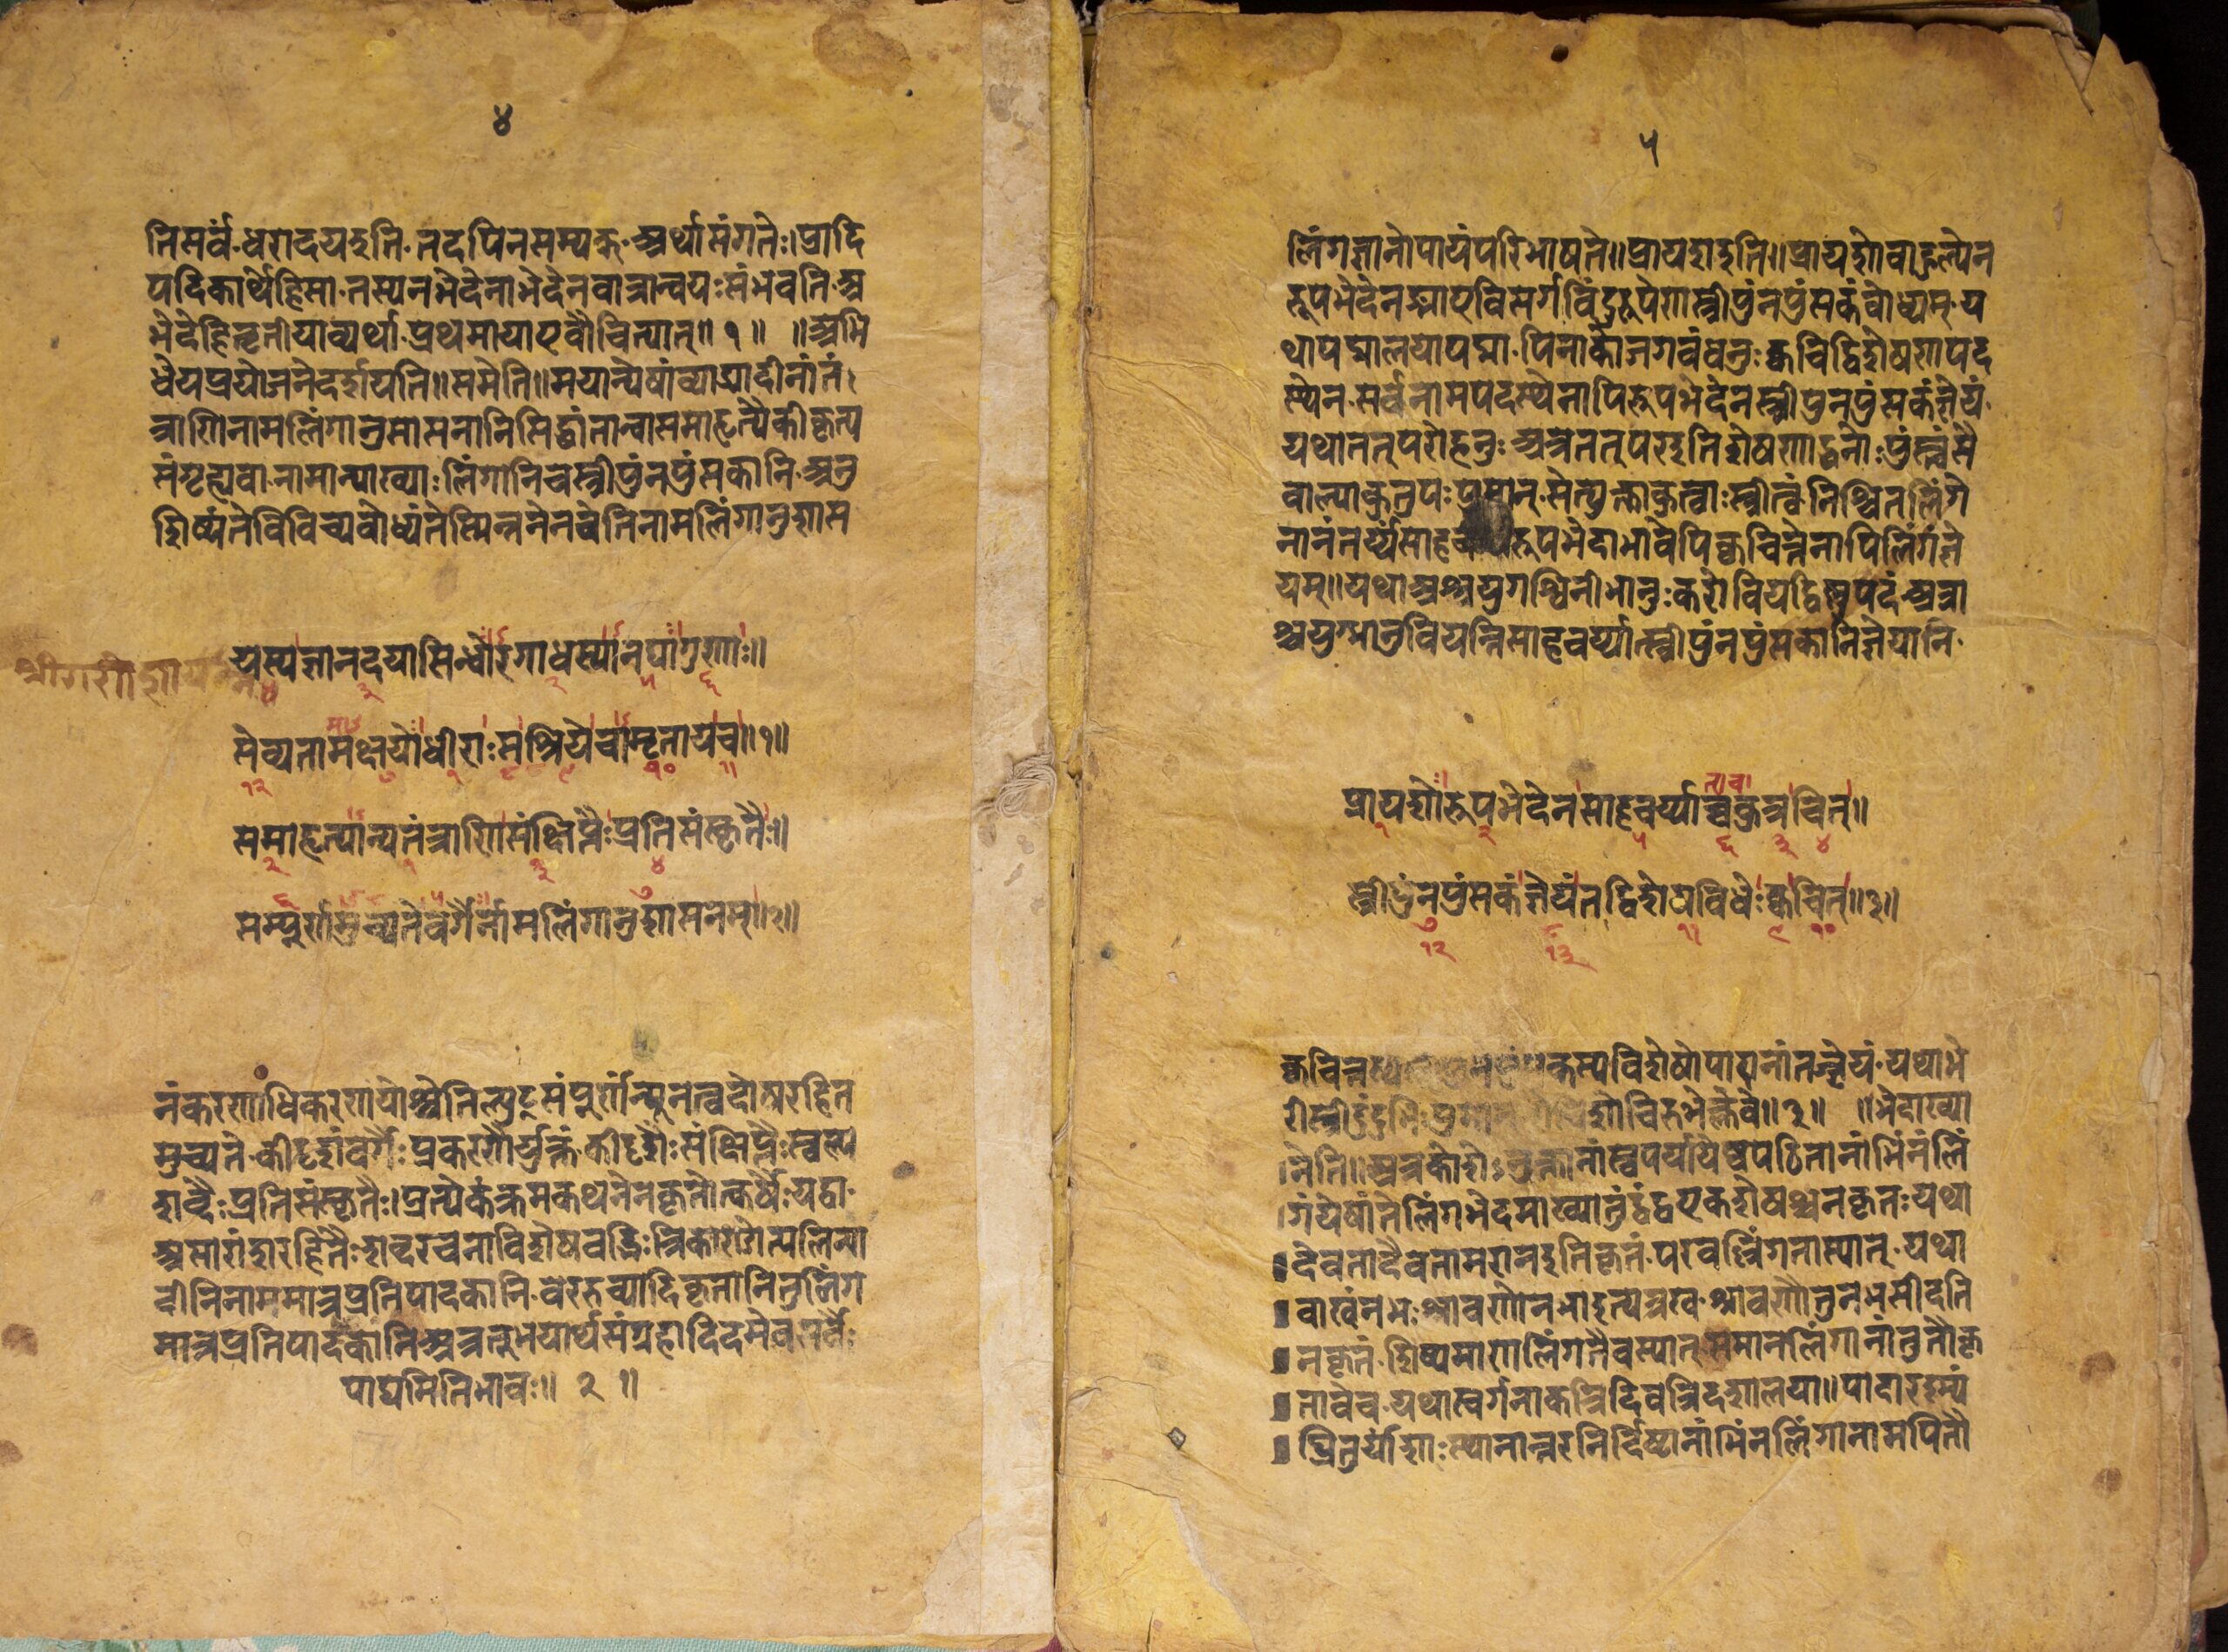 ४
तिसर्वं.धरादयइति.तदपिनसम्यक्.अर्थासंगतेः।प्रादि
पदिकार्थेहिसा.तस्यनभेदेनाभेदेनवात्रान्वयःसंभवति.अ
भेदेहितृतीयाव्यर्था.प्रथमायाएवौचित्यात्॥१॥ ॥अभि
धेयप्रयोजनेदर्शयति॥समेति॥मयान्येषांव्याद्यादीनांतं
त्राणिनामलिंगानुसासनानिसिद्धांतान्वासमाहृत्यैकीकृत्य
संगृह्यवा.नामान्याख्याःलिंगानिचस्त्रीपुंनपुंसकानि.अनु
शिष्यंतेविविच्यवोध्यंतेस्मिन्नतेनवेतिनामलिंगानुशास
यस्यज्ञानदयासिन्धोरगाधस्यानघागुणाः॥
सेव्यतामक्षयोधीराःसश्रियेचामृतायच॥१॥
समाहृत्यान्यतंत्राणिसंक्षिप्तैःप्रतिसंस्कृतैः॥
सम्पूर्णमुच्यतेवर्गैर्नामलिंगानुशासनम्॥२॥
नंकरणाधिकरणयोश्चेतिल्युट्संपूर्णंन्यूनत्वदोषरहित
मुच्यते.कीदृशंवर्गैःप्रकरणैर्युक्तं.कीदृशैःसंक्षिप्तैःस्वल्प
शब्दैःप्रतिसंस्कृतैः।प्रत्येकंक्रमकथनेनकृतोत्कर्षैःयद्वा.
असारांशरहितैःशब्दरचनाविशेषवद्भिःत्रिकांडोत्पलिन्या
दीनिनाममात्रप्रतिपादकानि.वररुच्यादिकृतानितुलिंग
मात्रप्रतिपादकानिअत्रतूभयार्थसंग्रहादिदमेवसर्वै
पाद्यमितिभावः॥ २ ॥
५
लिंगज्ञानोपायंपरिभाषते॥प्रायशइति॥प्रायशोवाहुल्येन
रूपभेदेनङ्यापविसर्गविंदुरूपेणस्त्रीपुंनपुंसकंवोध्यम्.य
थापद्मालयापद्मा.पिनाकोजगवंधनुःक्वचिद्विशेषणपद
स्थेन.सर्वनामपदस्थेनापिरूपभेदेनस्त्रीपुन्नपुंसकंज्ञेयं.
यथातत्परोहनुःअत्रतत्परइतिविशेषणाद्धनोःपुंस्त्वंसै
वाल्पाकुतुपःपुमान्.सेत्युक्त्वाकुत्वाःस्त्रीत्वंनिश्चितलिंगे
नानंतर्य्यंसाहचर्य्यंरूपभेदाभावेपिक्वचित्तेनापिलिंगंज्ञे
यम्॥यथाअश्वयुगश्विनीभानुःकरोवियद्विष्णुपदंअत्रा
श्वयुग्भानुवियन्तिसाहचर्य्यात्स्त्रीपुंनपुंसकानिज्ञेयानि.
प्रायशोरूपभेदेनसाहचर्य्याच्चकुत्रचित्॥
स्त्रीपुंनपुंसकंज्ञेयंतद्विशेषविधेःक्वचित्॥३॥
रीस्त्रीदुंदुभिःपुमान् ॥३॥ ॥भेदाख्या
नेति॥अत्रकोशेऽनुक्तानांस्वपर्यायेष्वपठितानांभिंनलिं
गंयेषांतेलिंगभेदमाख्यातुंद्वंद्वएकशेषश्चनकृतःयथा
देवतादैवतामरानइतिकृतं.परवल्लिंगतास्यात्.यथा
वाखंनभःश्रावणोनभाइत्यत्रख.श्रावणौतुनभसीइति
नकृतं.शिष्यमाणलिंगतैवस्यात्.समानलिंगानांतुतौकृ
तावेव.यथास्वर्गनाकत्रिदिवत्रिदशालयाः॥पादारश्म्यं
घ्रितुर्यांशाःस्थानान्तरनिर्दिष्टानांभिंनलिंगानामपितौ